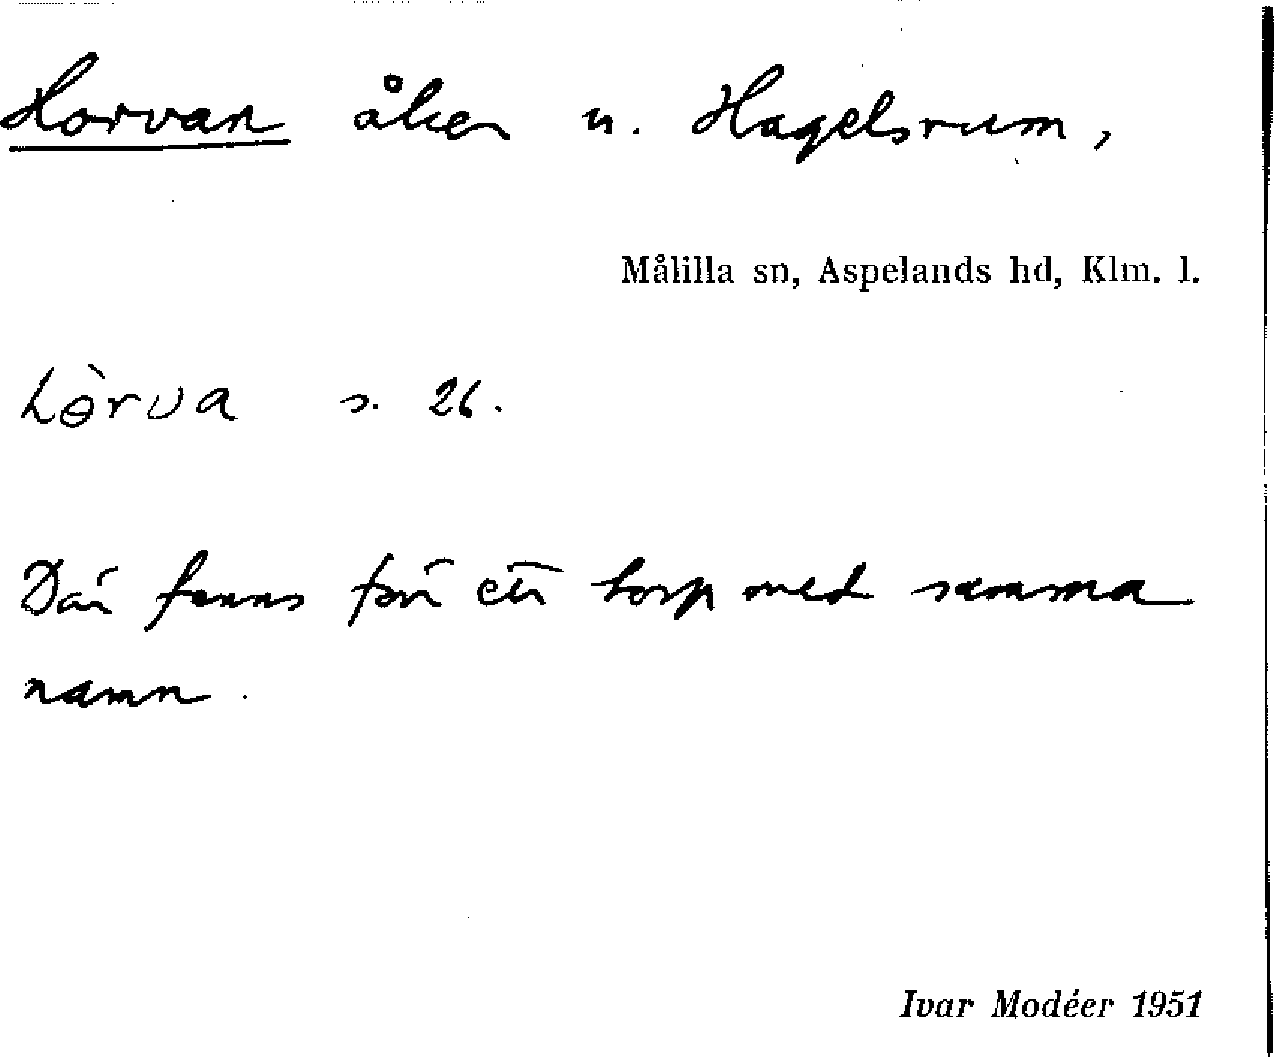 Horvan åker u. Hagelsrum,
Målilla sn, Aspelands hd, Klm. l.
hòrva s. 26.
Där fanns förr ett torp med samma
namn.
Ivar Modéer 1951